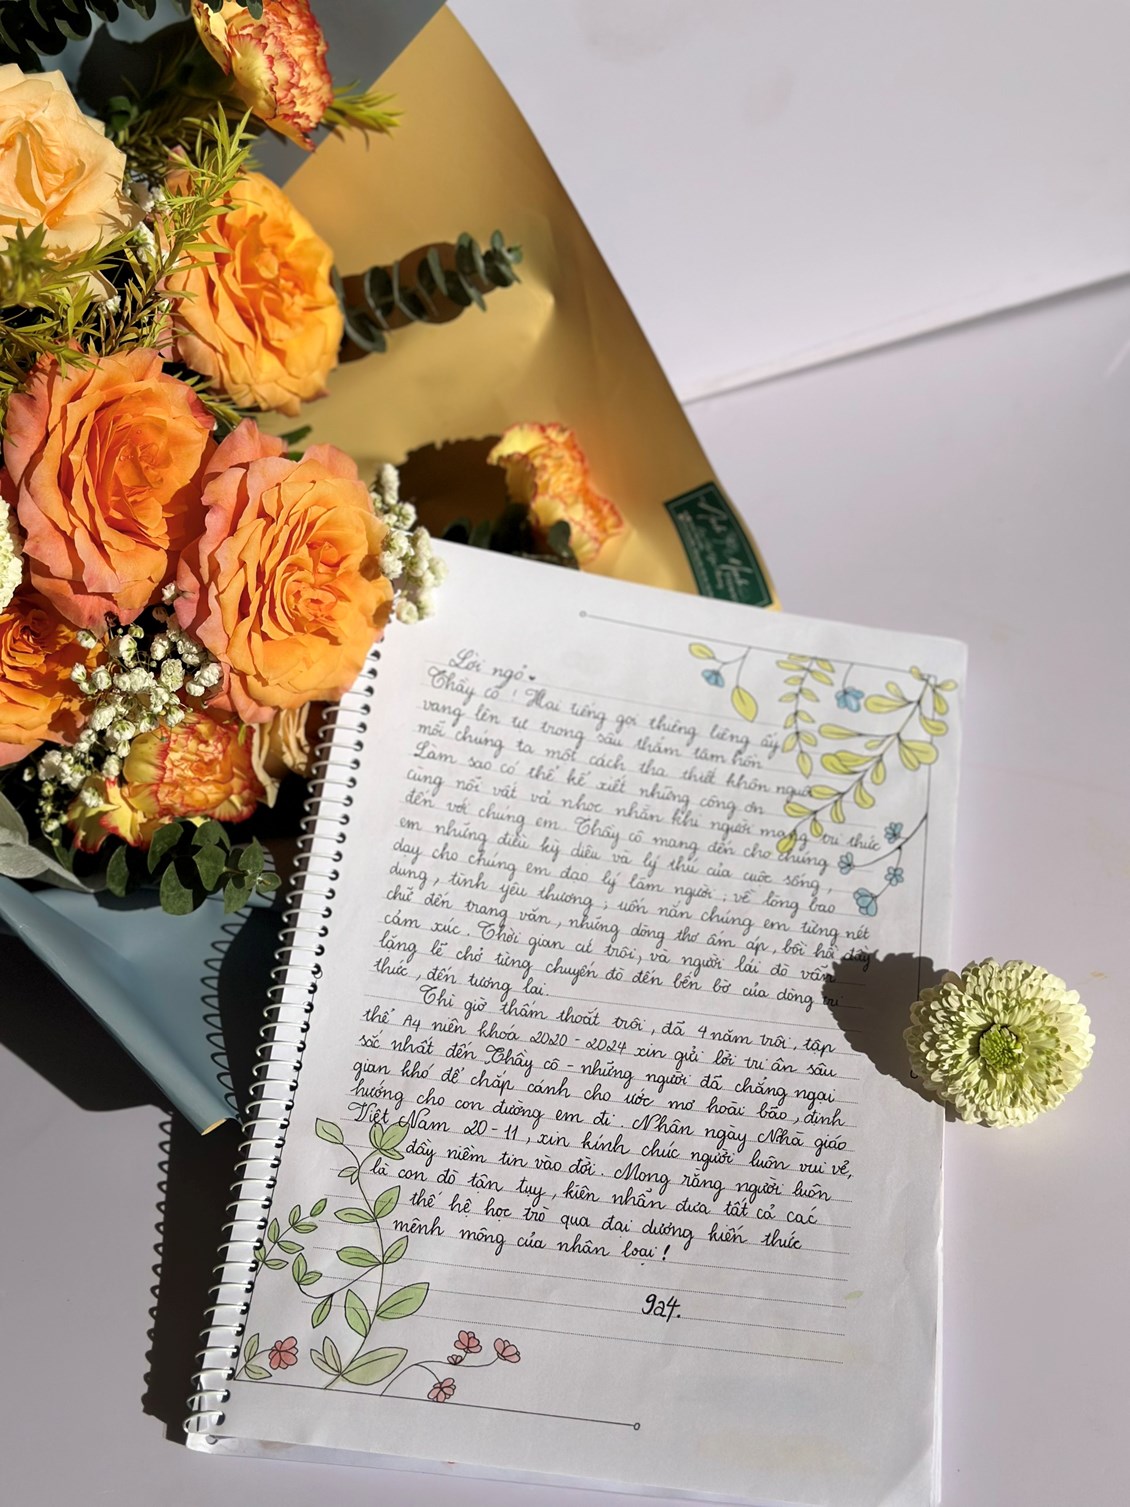 Lời ngỏ
Thầy cô ! Hai tiếng gọi thiêng liêng ấy
vang lên từ trong sâu thẳm tâm hồn
mỗi chúng ta một cách tha thiết khôn nguôi
Làm sao có thể kể xiết những công ơn
cùng nỗi vất vả nhọc nhằn khi người mang tri thức
đến với chúng em. Thầy cô mang đến cho chúng
em những điều kỳ diệu và lý thú của cuộc sống,
dạy cho chúng em đạo lý làm người ; về lòng bao
dung, tình yêu thương ; uốn nắn chúng em từng nét
chữ đến trang văn, những dòng thơ ấm áp, bồi hồi đầy
cảm xúc. Thời gian cứ trôi, và người lái đò vẫn
lặng lẽ chở từng chuyến đò đến bến bờ của dòng tri
thức, đến tương lai.
Thì giờ thấm thoắt trôi, đã 4 năm trôi, tập
thể A4 niên khoá 2020 - 2024 xin gửi lời tri ân sâu
sắc nhất đến Thầy cô - những người đã chẳng ngại
gian khó để chắp cánh cho ước mơ hoài bão, định
hướng cho con đường em đi. Nhân ngày Nhà giáo
Việt Nam 20-11, xin kính chúc người luôn vui vẻ,
đầy niềm tin vào đời. Mong rằng người luôn
là con đò tận tụy, kiên nhẫn đưa tất cả các
thế hệ học trò qua đại dương kiến thức
mênh mông của nhân loại !
9a4.